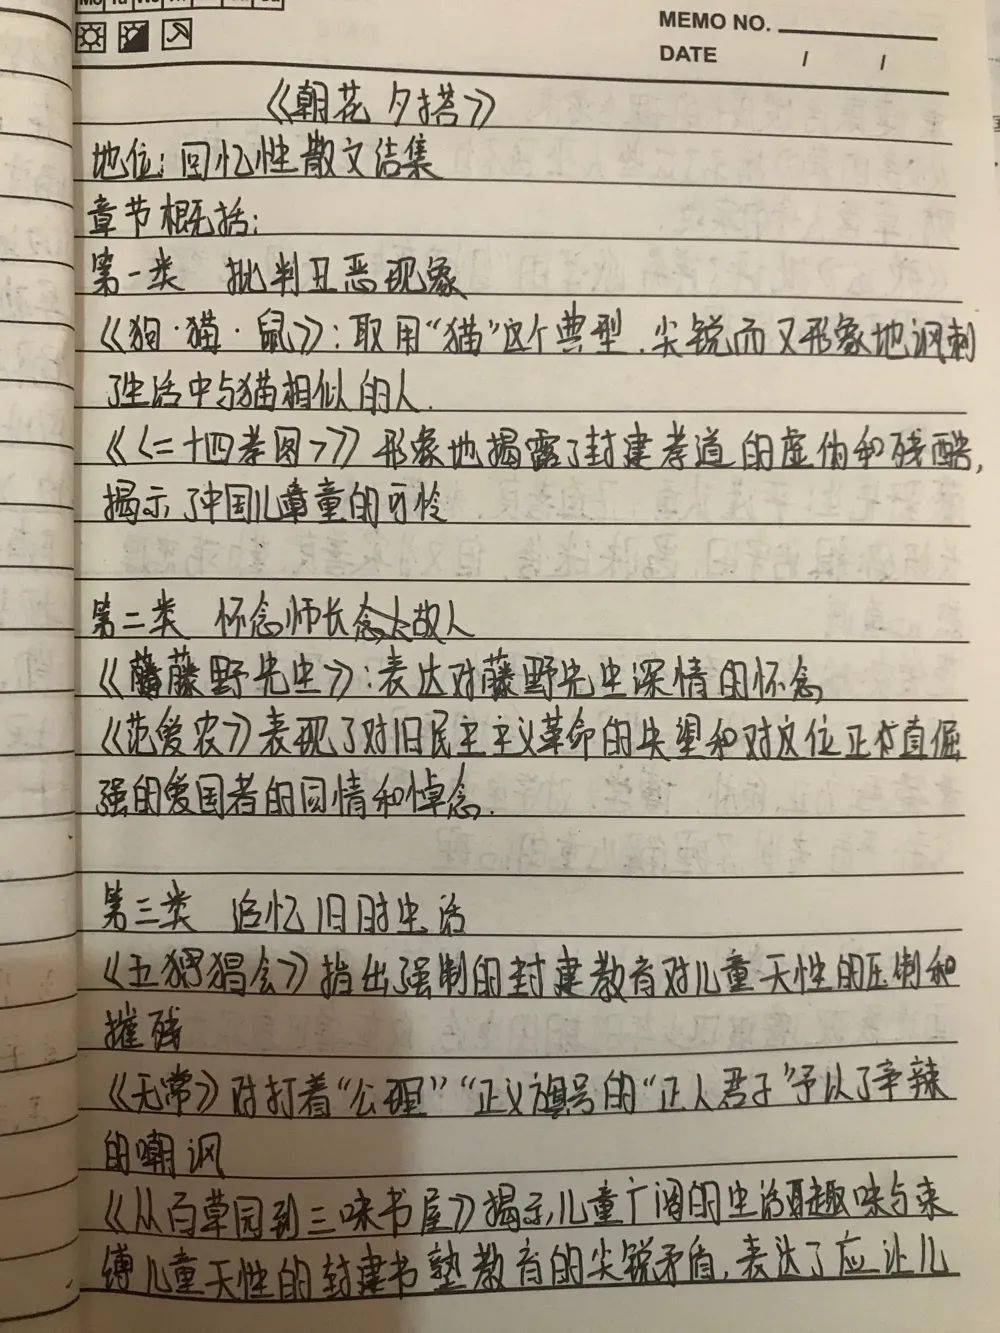 MEMO NO.
DATE / /
《朝花夕搭》
地位：回忆性散文结集
章节概括：
第一类 批判丑恶现象
《狗·猫·鼠》：取用“猫”这个典型．尖锐而又形象地讽刺
了生活中与猫相似的人．
《〈二十四孝图〉》形象地揭露了封建孝道的虚伪和残酷，
揭示了中国儿童的可怜
第二类 怀念师长念故人
《藤野先生》：表达对藤野先生深情的怀念
《范爱农》表现了对旧民主主义革命的失望和对这位正直倔
强的爱国者的同情和悼念．
第三类 追忆旧时生活
《五猖会》指出了强制的封建教育对儿童天性的压制和
摧残
《无常》对打着“公理”“正义旗号的“正人君子”予以了辛辣
的嘲讽
《从百草园到三味书屋》揭示儿童广阔的生活趣味与束
缚儿童天性的封建书塾教育的尖锐矛盾，表达了应让儿